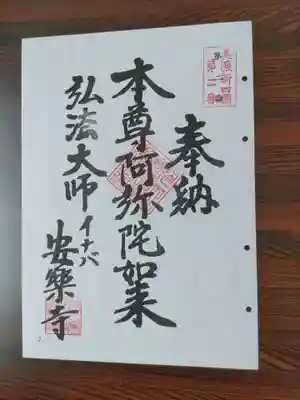 奉納
本尊阿弥陀如来
弘法大師
イナバ
安樂寺
2